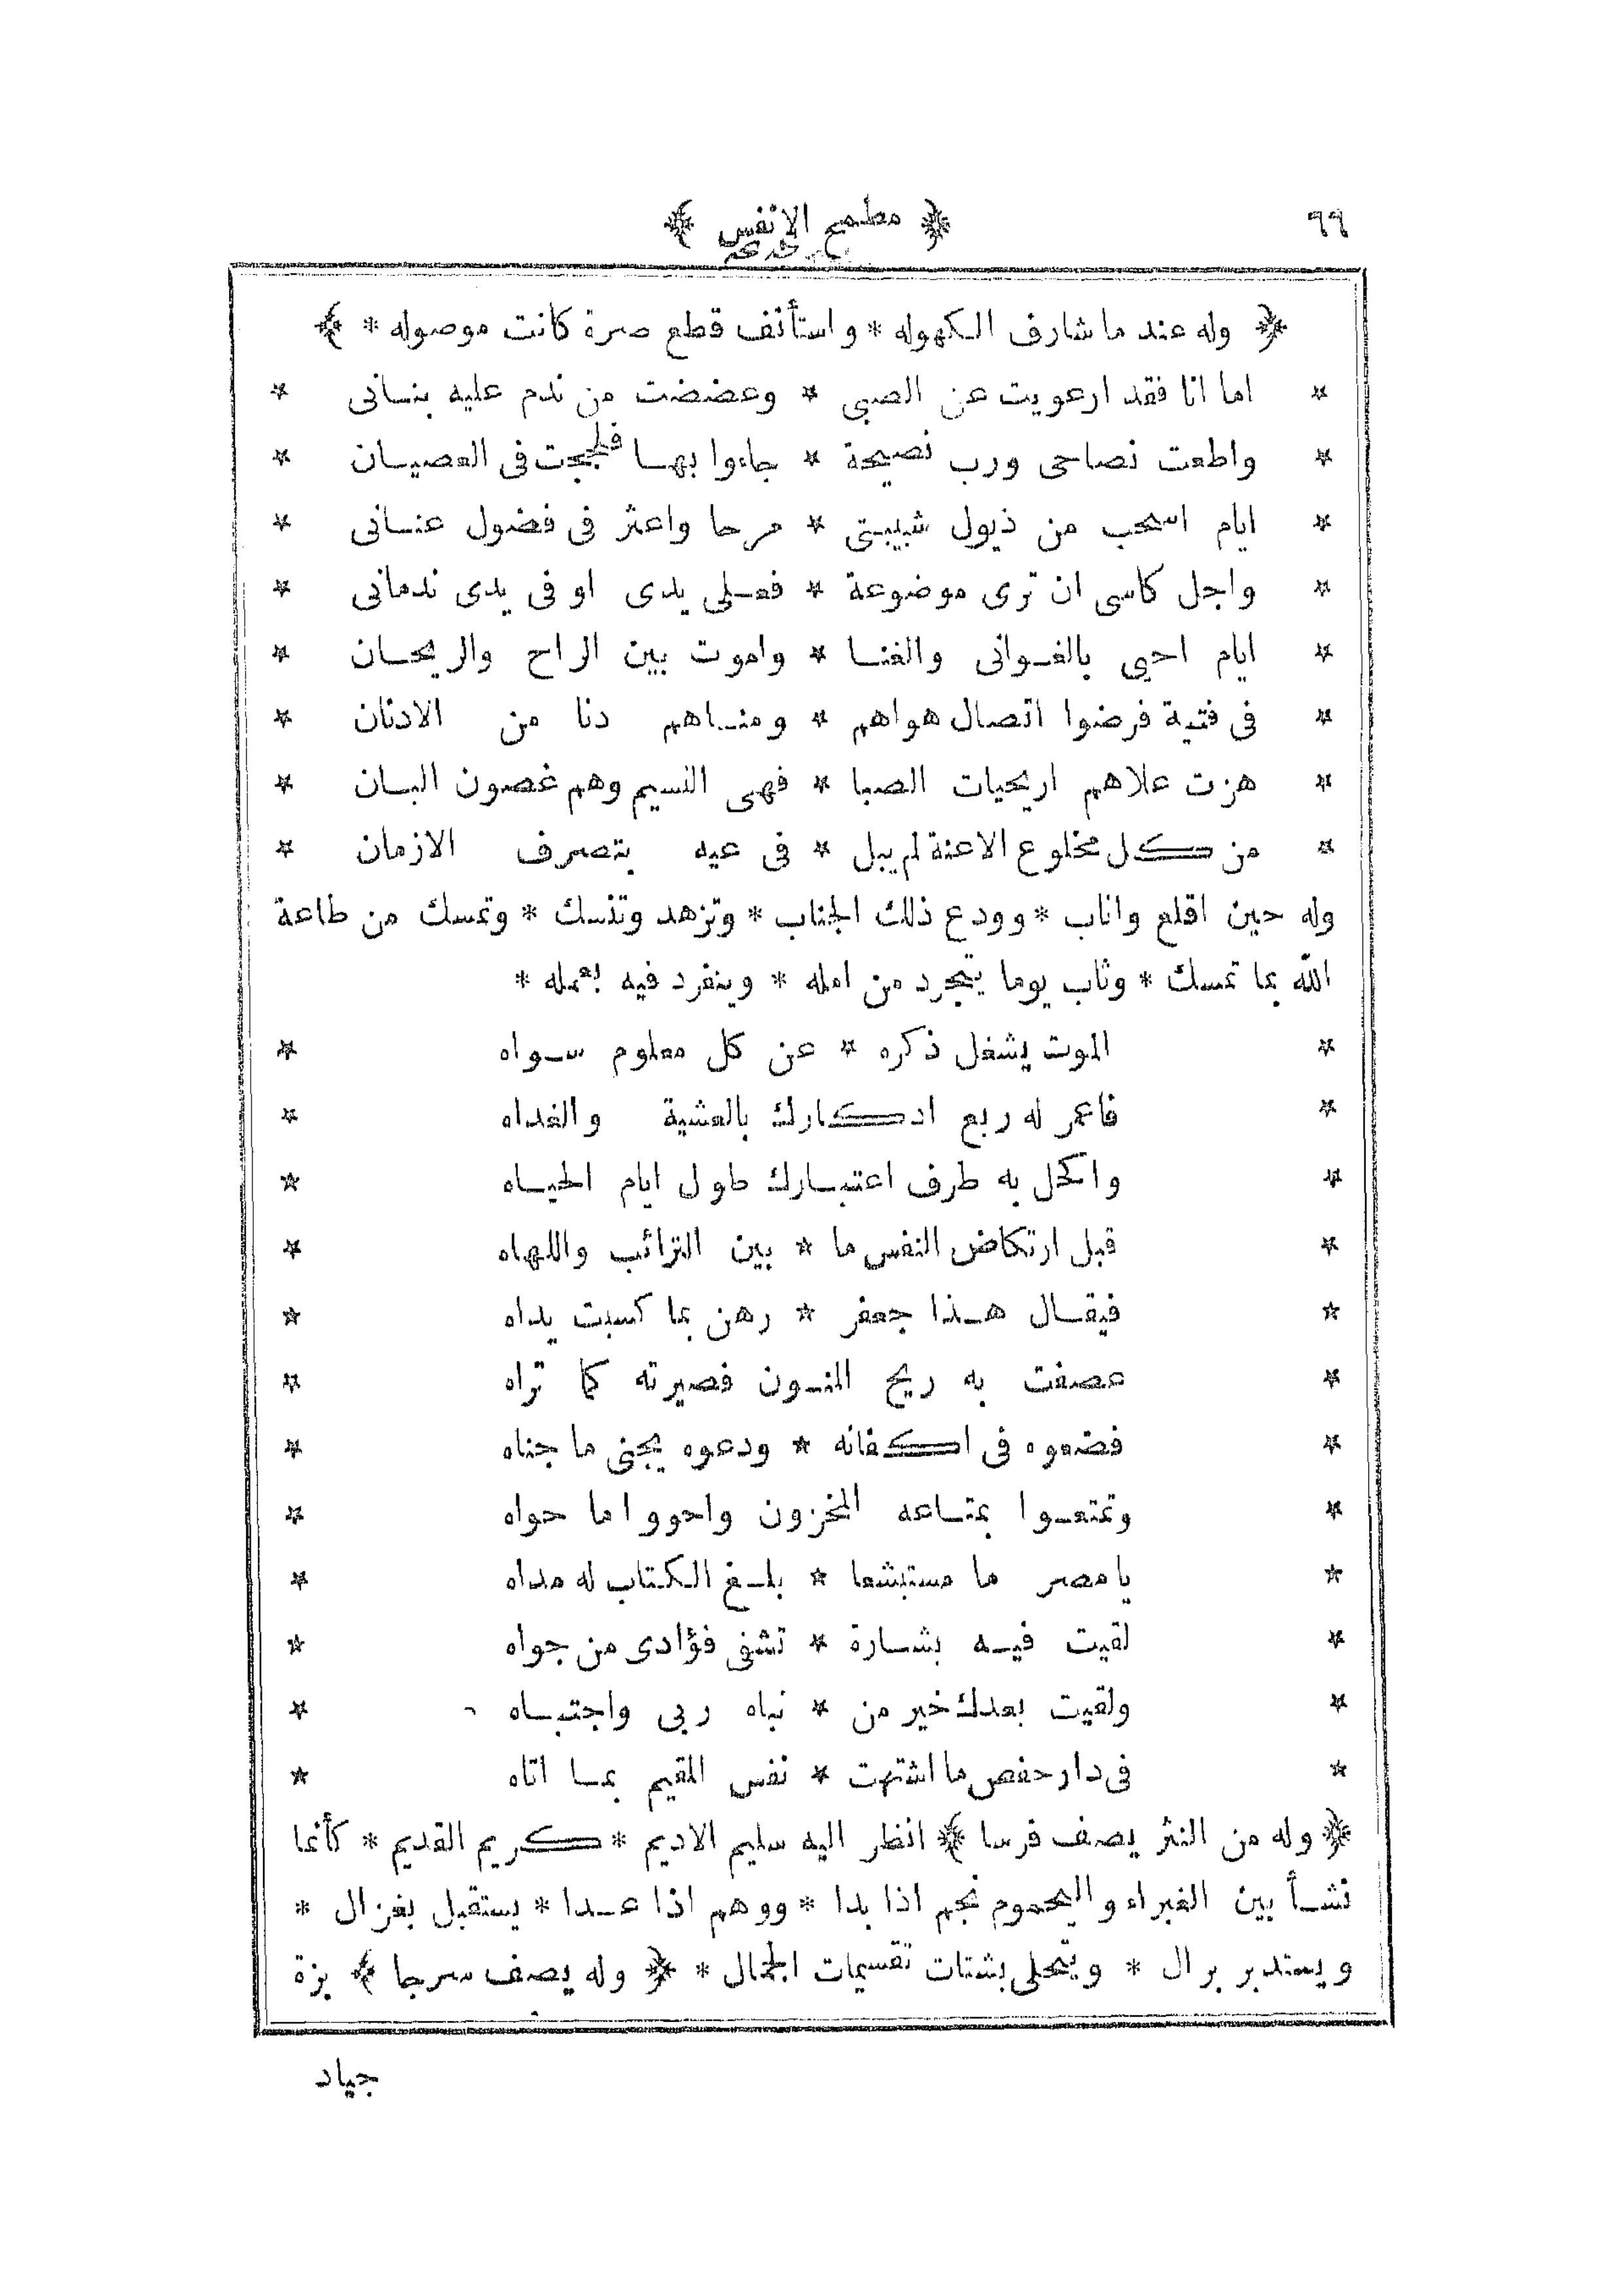 ٦٦ ﴿ مطمح الانفس ﴾
﴿ وله عند ما شارف الكهوله * واستأنف قطع صرة كانت موصوله * ﴾
* اما انا فقد ارعويت عن الصبى * وعضضت من ندم عليه بنسانى *
* واطعت نصاحى ورب نصيحة * جاءوا بهسا فلججت فى العصيسان *
* ايام اسحب من ذيول شبيبتى * مرحا واعثر فى فضول عنسانى *
* واجل كاسى ان ترى موضوعة * فعلى يدى او فى يدى ندمانى *
* ايام احيى بالغوانى والغنسا * واموت بين الراح والريحسان *
* فى فتية فرضوا اتصال هواهم * ومنساهم دنا من الادنان *
* هزت علاهم اريحيات الصبا * فهى النسيم وهم غصون البسان *
* من كل مخلوع الاعنة لم يبل * فى عيه بتصرف الازمان *
وله حين اقلع واناب * وودع ذلك الجناب * وتزهد وتنسك * وتمسك من طاعة
الله بما تمسك * وثاب يوما يتجرد من امله * وينفرد فيه بعمله *
* الموت يشغل ذكره * عن كل معلوم سواه *
* فاعمر له ربع ادكارك بالعشية والغداه *
* واكحل به طرف اعتبسارك طول ايام الحيساه *
* قبل ارتكاض النفس ما * بين الترائب واللهاه *
* فيقسال هذا جعفر * رهن بما كسبت يداه *
* عصفت به ريح المنون فصيرته كما تراه *
* فضعوه فى اكفانه * ودعوه يجنى ما جناه *
* وتمتعوا بمتساعه المخزون واحووا ما حواه *
* يا مصر ما مستبشعا * بلغ الكتاب له مداه *
* لقيت فيه بشسارة * تشفى فؤادى من جواه *
* ولقيت بعدك خير من * نباه ربى واجتبساه *
* فى دار حفص ما اشتهت * نفس المقيم بمسا اتاه *
﴿ وله من النثر يصف فرسا ﴾ انظر اليه سليم الاديم * كريم القديم * كأنما
نشأ بين الغبراء واليحموم نجم اذا بدا * ووهم اذا عدا * يستقبل بغزال *
ويستدبر برال * ويتحلى بشتات تقسيمات الجمال * ﴿ وله يصف سرجا ﴾ بزة
جياد